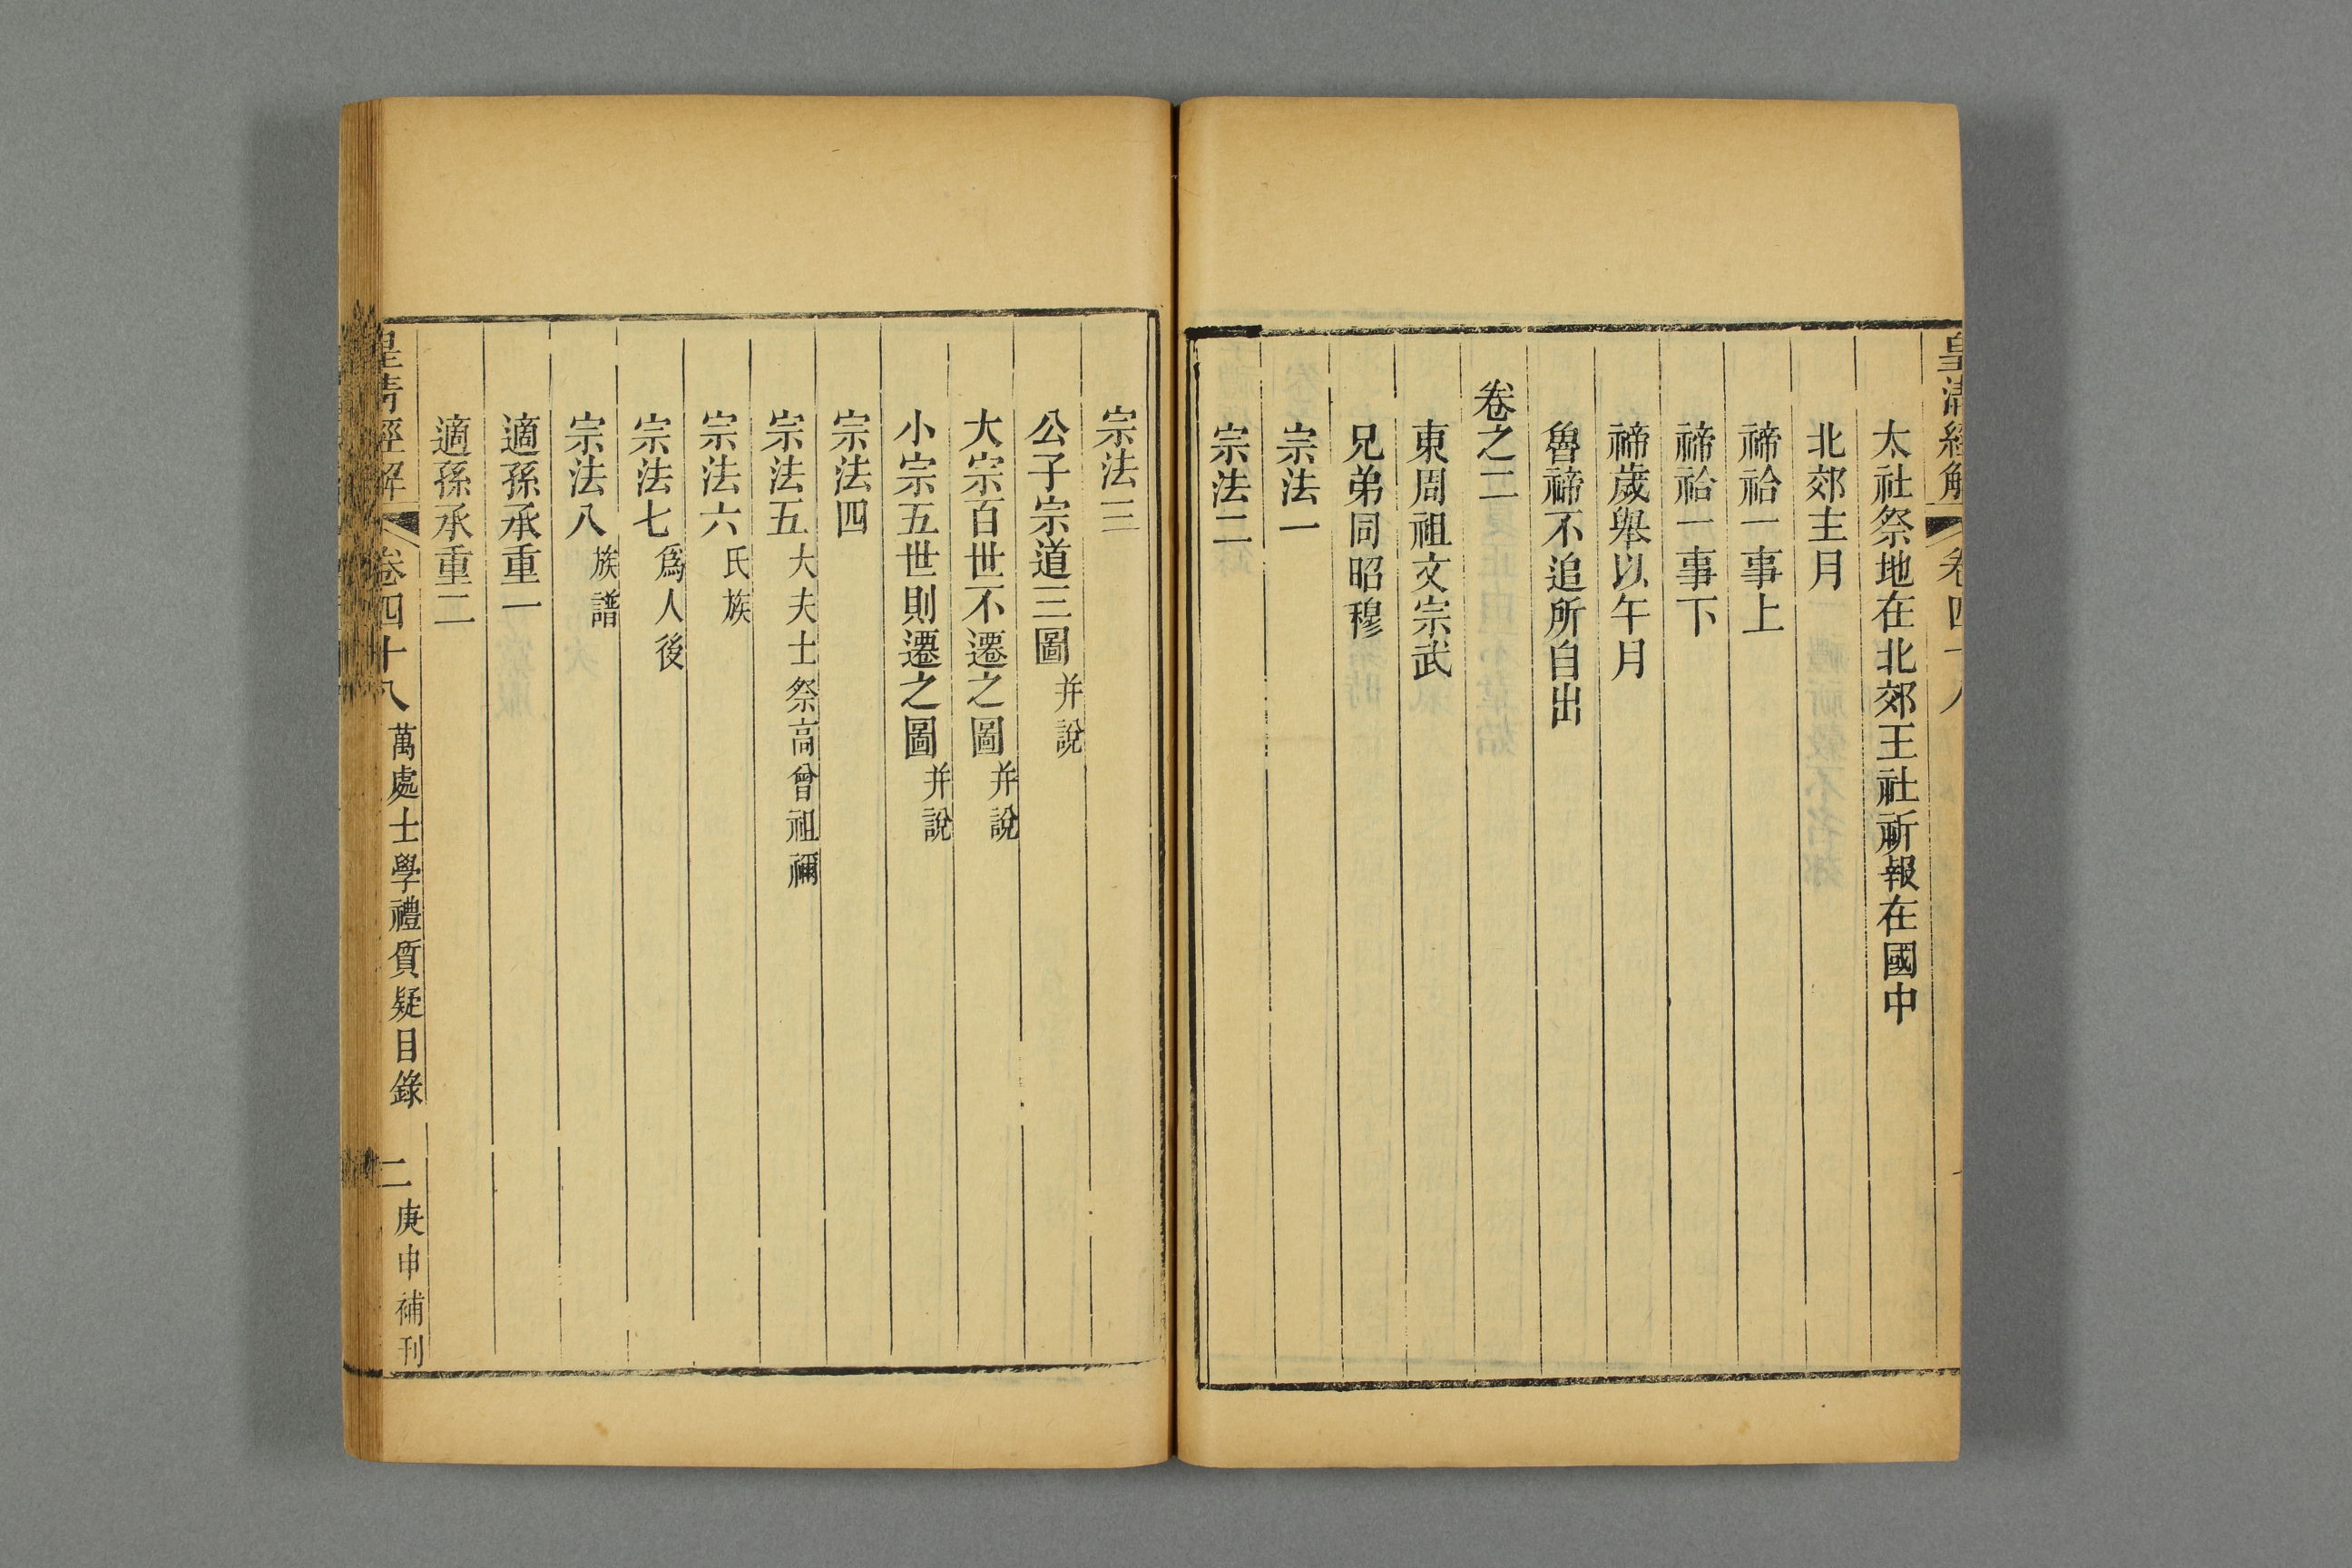 皇清經解 卷四十八
太社祭地在北郊王社祈報在國中
北郊主月
禘祫一事上
禘祫一事下
禘歲舉以午月
魯禘不追所自出
卷之二
東周祖文宗武
兄弟同昭穆
宗法一
宗法二
宗法三
公子宗道三圖 并說
大宗百世不遷之圖 并說
小宗五世則遷之圖 并說
宗法四
宗法五 大夫士祭高曾祖禰
宗法六 氏族
宗法七 爲人後
宗法八 族譜
適孫承重一
適孫承重二
皇清經解 卷四十八 萬處士學禮質疑目錄 二 庚申補刊